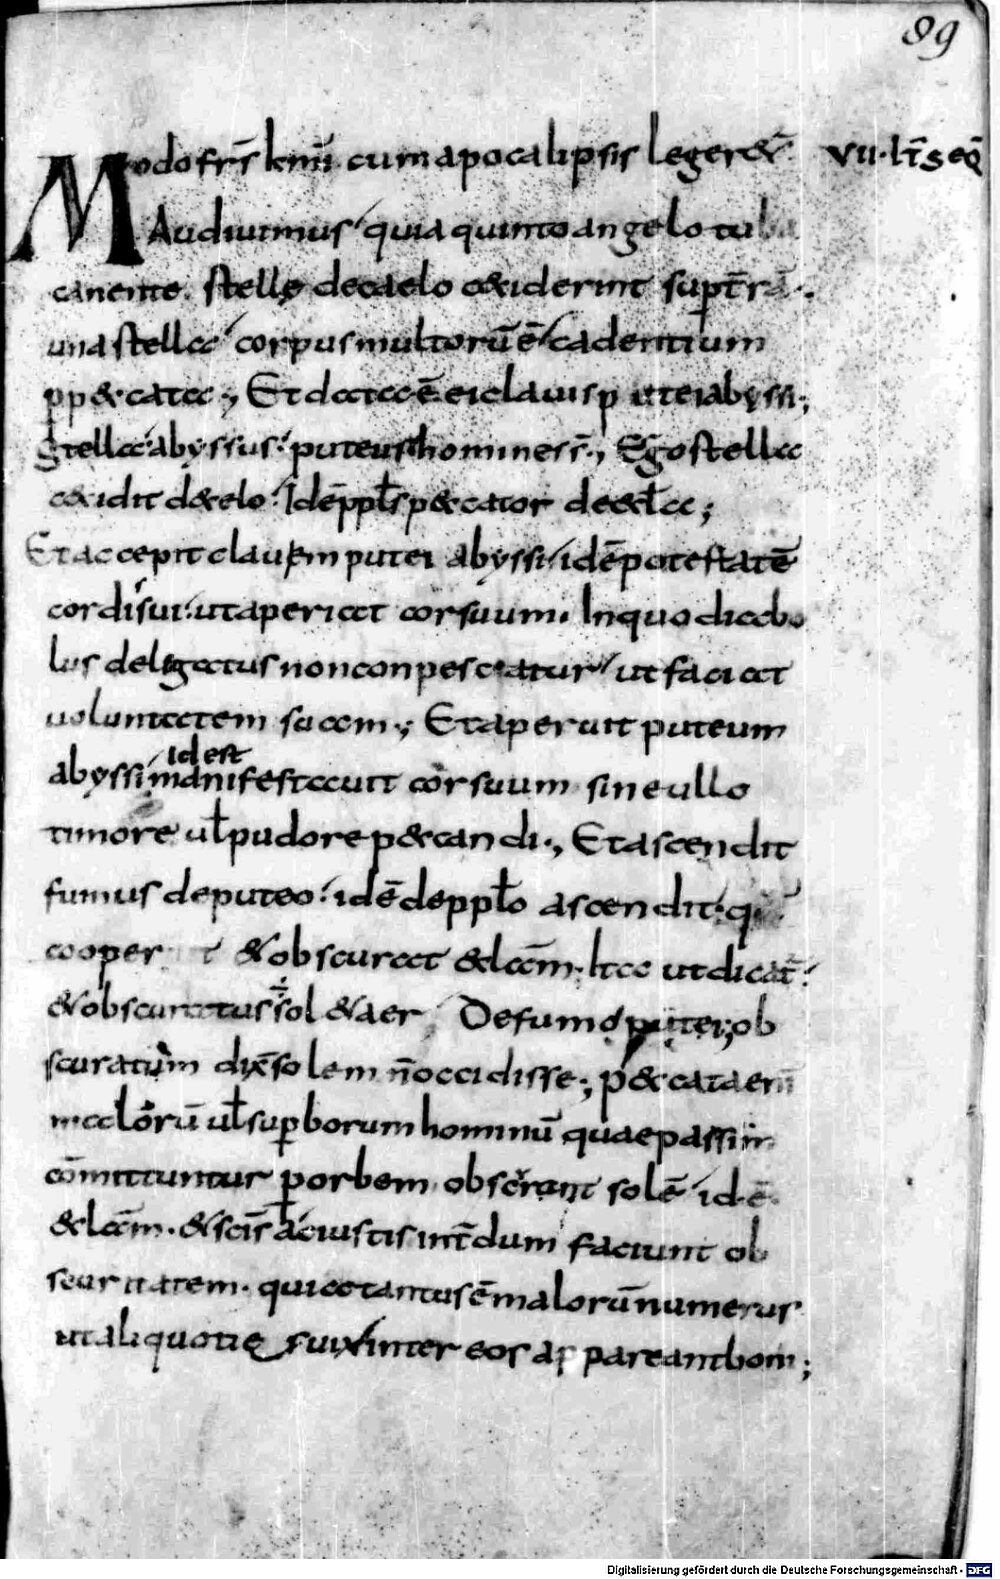 89
Modo fr̄s km̄i. cum apocalipsis legeret̄
VII. lt̄s eq̄
Audiuimus quia quinto angelo tuba
canente. stelle de caelo ceciderint sup t̄rā.
una stella corpus multorū ē cadentium
p peccata; Et data ē ei clauis putei abyssi;
Stella abyssus puteus homines s̄; Ergo stella
cecidit de celo. Idē ppl̄s peccator de eccl̄a;
Et accepit clauem putei abyssi idē potestatē
cordis sui ut aperiat cor suum. In quo diabo
lus deligatus non conpescatur ut faciat
uoluntatem suam; Et aperuit puteum
abyssi id est manifestauit cor suum sine ullo
timore ul̄ pudore peccandi; Et ascendit
fumus de puteo. idē de ppl̄o ascendit. qui
cooperit et obscurat eccl̄am. Ita ut dicat̄.
& obscuratus ē sol & aer De fumo putei; ob
scuratum dix̄ solem n̄ occidisse; peccata enī
malorū ul̄ superborum hominū quae passim
cōmittuntur p orbem obscurant solē id. ē.
eccl̄am. & sc̄is ac iustis int̄dum faciunt ob
scuritatem. quia tantus ē malorū numerus
ut aliquotie s uix inter eos appareant boni;
Digitalisierung gefördert durch die Deutsche Forschungsgemeinschaft - DFG